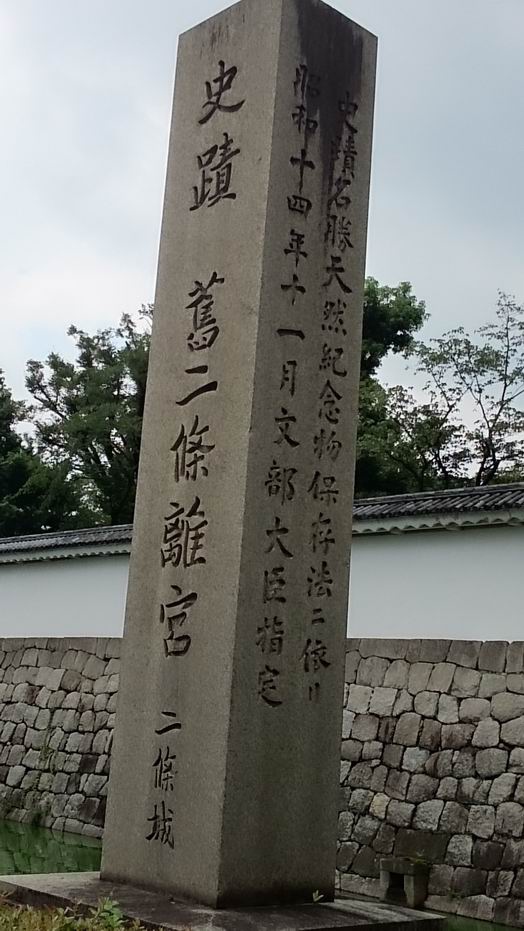 史蹟 舊二條離宮 二條城
史蹟名勝天然紀念物保存法ニ依リ
昭和十四年十一月文部大臣指定